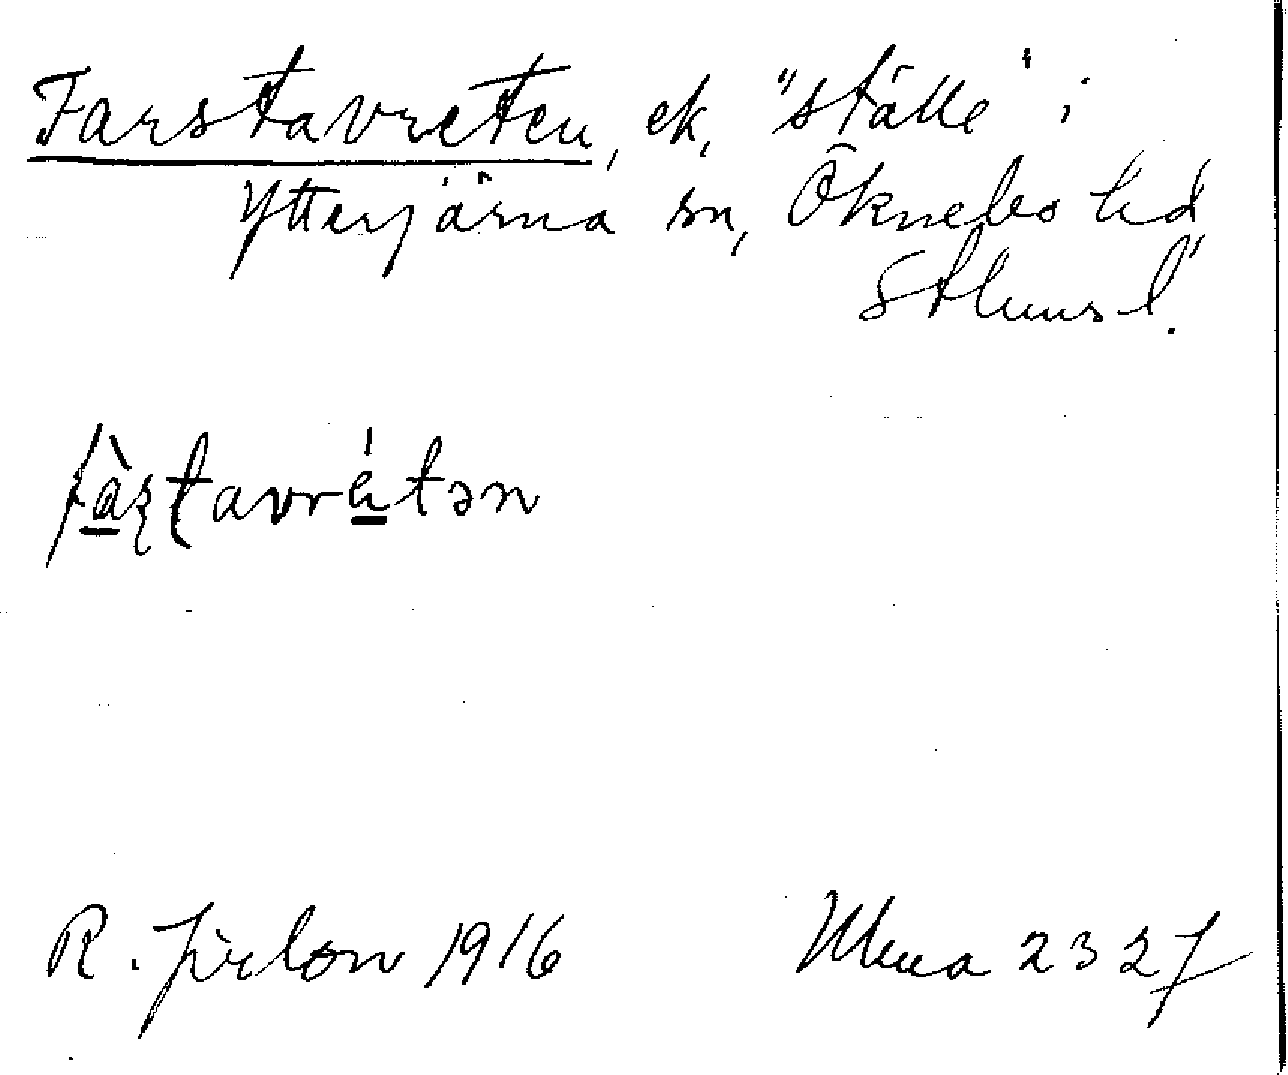 Farstavreten, ek, "ställe" i
Ytterjärna sn, Öknebo hd
Sthms l.
fàʂʈavrétən
R. Jirlow 1916
Uma 2327